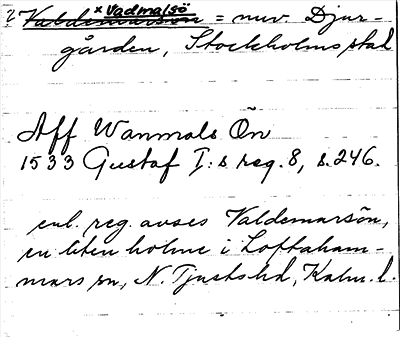 ? Valdemarsön × Vadmalsö = nuv. Djur-
gården, Stockholms stad
Aff Wanmals Ön
1533 Gustaf I:s reg. 8, s. 246.
enl. reg. avses Valdemarsön,
en liten holme i Loftaham-
mars sn, N. Tjusts hd, Kalm. l.